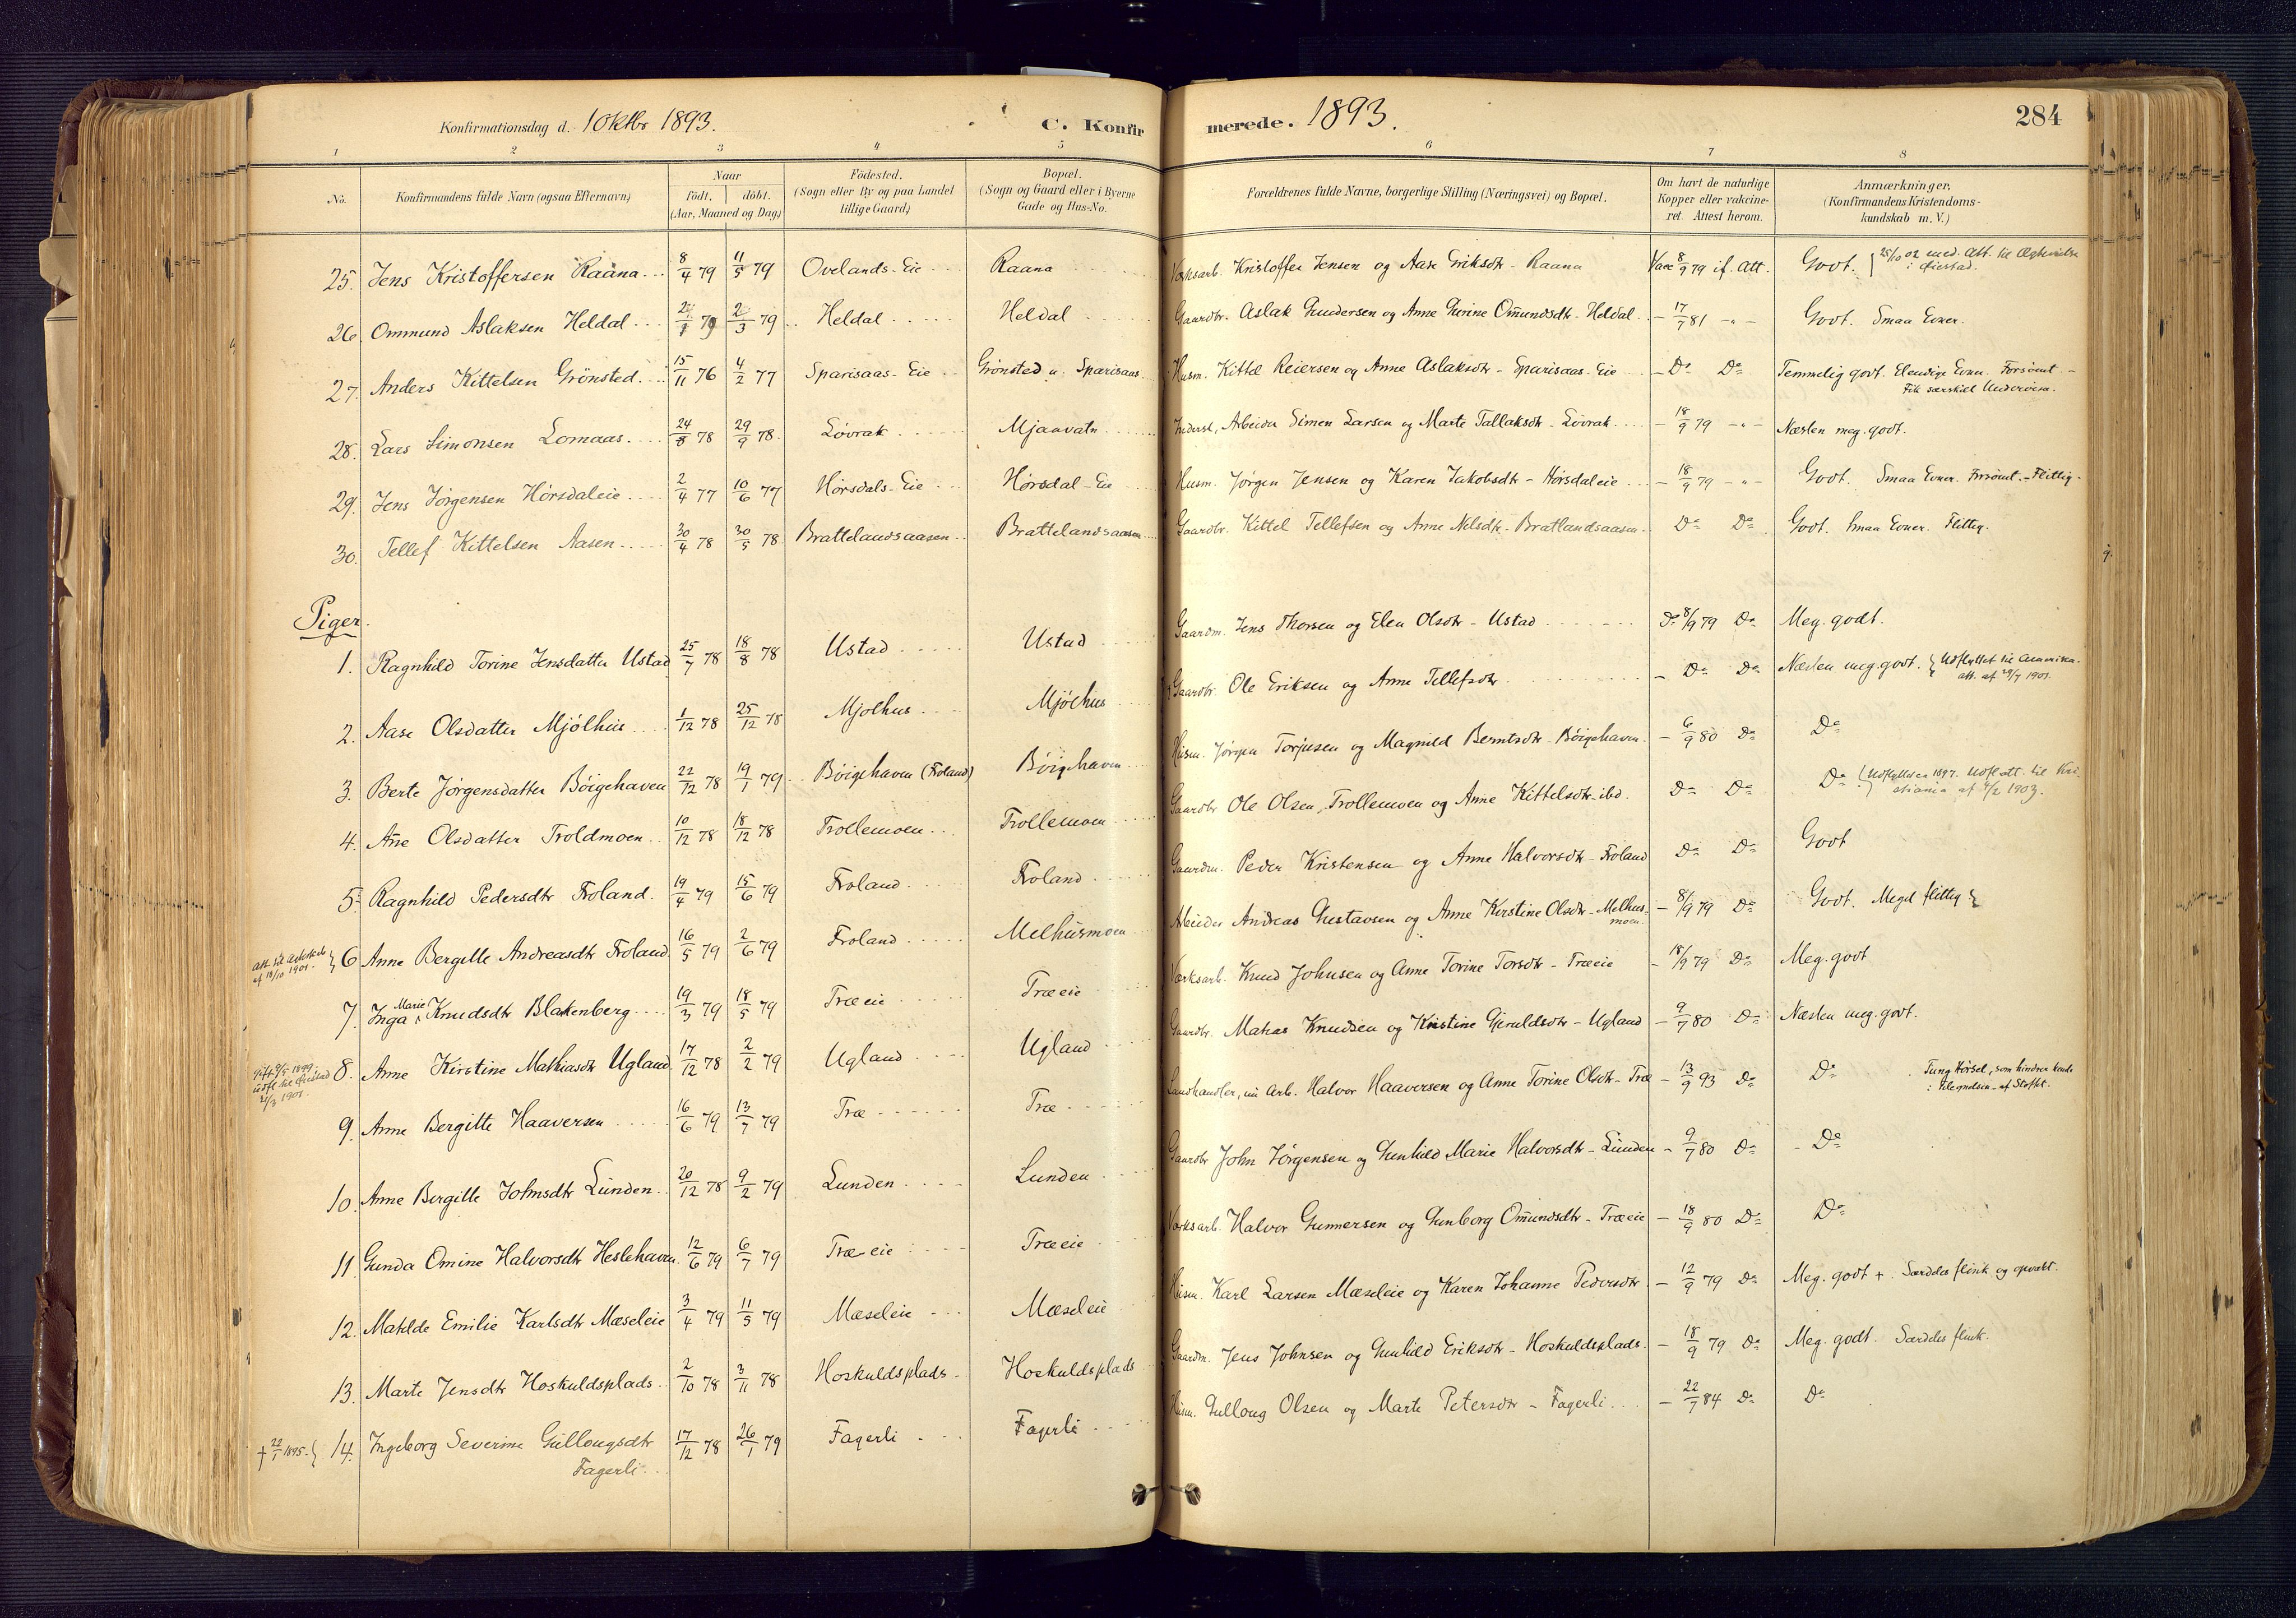 Konfirmationsdag d. 1 Oktbr 1893.
C. Konfirmerede. 1893.
284
1 2 3 4 5 6 7 8
No. Konfirmandens fulde Navn (ogsaa Efternavn) Naar födt. döbt. (Aar, Maaned og Dag) Födested. (Sogn eller By og paa Landet tillige Gaard) Bopæl. (Sogn og Gaard eller i Byerne Gade og Hus-No. Forældrenes fulde Navne, borgerlige Stilling (Næringsvei) og Bopæl. Om havt de naturlige Kopper eller vakcineret. Attest herom. Anmærkninger. (Konfirmandens Kristendomskundskab m. V.)
25. Jens Kristoffersen Raana 8/4 79 11/5 79 Ovelands-Eie Raana Værksarb. Kristoffer Jensen og Aase Eriksdtr - Raana Vacc 8/9 79 if. Att. Godt. 25/10 02 med. Att. til Ægteskab i Øiestad.
26. Ommund Aslaksen Heldal 79 2/3 79 Heldal Heldal Gaardbr. Aslak Gundersen og Anne Gurine Omundsdtr - Heldal - 17/7 81 -"- Godt. Smaa Evner.
27. Anders Kittelsen Grönsted 15/11 76 4/2 77 Sparisaas-Eie Grönsted u. Sparisaas Husm. Kittel Reiersen og Anne Aslaksdtr - Sparisaas-Eie - Do Do Temmelig godt. Elendige Evner. Forsömt. - Fik særskilt Underviisn.
28. Lars Simonsen Lomaas 24/8 78 29/9 78 Lövrak Mjaavatn Inderst, Arbeider Simen Larsen og Marte Tallaksdtr - Lövrak - 18/9 79 -"- Næsten meg. godt.
29. Jens Jörgensen Hörsdaleie 2/4 77 10/6 77 Hörsdals-Eie Hörsdal-Eie Husm. Jörgen Jensen og Karen Jakobsdtr - Hörsdaleie - 18/9 79 -"- Godt. Smaa Evner. Forsömt. - Flittig.
30. Tellef Kittelsen Aasen 30/4 78 30/5 78 Brattelandsaasen Brattelandsaasen Gaardbr. Kittel Tellefsen og Anne Nelsdtr - Bratlandsaasen Do Do Godt. Smaa Evner. Flittig.
Piger.
1. Ragnhild Torine Jensdatter Ustad 25/7 78 18/8 78 Ustad Ustad Gaardm. Jens Thorsen og Elen Olsdtr - Ustad Do 8/9 79 Do Meg. godt.
2. Aase Olsdatter Mjölhus 1/12 78 25/12 78 Mjölhus Mjölhus Gaardbr. Ole Eriksen og Anne Tellefsdtr - Do Do Næsten meg. godt. Udflyttet til Amerika. att. af 29/7 1901.
3. Berte Jörgensdatter Böigehaven 22/12 78 19/1 79 Böigehaven (Froland) Böigehaven Husm. Jörgen Torjusen og Magnild Berntsdtr - Böigehaven - 6/9 80 Do Do
4. Anne Olsdatter Troldmoen 10/12 78 18/12 78 Trollemoen Trollemoen Gaardbr Ole Olsen Trollemoen og Anne Kittelsdtr - ibd. Do Do Do Udflyttet 1897. Udfl. att. til Kristiania af 1903.
5. Ragnhild Pedersdtr Froland. 19/4 79 15/6 79 Froland Froland Gaardm. Peder Kristensen og Anne Halvorsdtr - Froland Do Do Godt
att. til Ægteskab af 13/10 1901. 6 Anne Bergitte Andreasdtr Froland 16/5 79 2/6 79 Froland Melhusmoen Arbeider Andreas Gustavsen og Anne Kirstine Olsdtr - Melhusmoen - 8/9 79 Do Godt. Meget flittig
7. Inga Marie Knudsdtr Blakenberg 19/3 79 18/5 79 Træeie Træeie Værksarb. Knud Johnsen og Anne Torine Torsdtr - Træeie - 18/9 79 Do Meg. godt
Gift 9/5 1899. udfl. til Øiestad 2/3 1901. 8. Anne Kirstine Mathiasdtr Ugland 17/12 78 2/2 79 Ugland Ugland Gaardbr. Matias Knudsen og Kristine Gjeruldsdtr - Ugland - 9/7 80 Do Næsten meg. godt.
9. Anne Bergitte Haaversen 16/6 79 13/7 79 Træ Træ Landhandler, nu Arb. Halvor Haaversen og Anne Torine Olsdtr - Træ - 13/9 93 Do Do Tung Hörsel, som hindrer hende i Tilegnelsen af Stoffet.
10. Anne Bergitte Johnsdtr Lunden 20/12 78 9/2 79 Lunden Lunden Gaardbr John Jörgensen og Gunhild Marie Halvorsdtr - Lunden - 9/7 80 Do Do
11. Gunda Omine Halvorsdtr Heslehaven. 12/6 79 6/7 79 Træeie Træeie Værksarb. Halvor Gunnersen og Gunborg Omundsdtr - Træeie - 18/9 80 Do Do
12. Matilde Emilie Karlsdtr Mæseleie 3/4 79 11/5 79 Mæseleie Mæseleie Husm. Karl Larsen Mæseleie og Karen Johanne Pedersdtr - 12/9 79 Do Meg. godt +. Særdeles flink og opvakt.
13. Marte Jensdtr Hoskuldsplads 2/10 78 3/11 78 Hoskuldsplads Hoskuldsplads Gaardm. Jens Johnsen og Gunhild Eriksdtr - Hoskuldsplads - 18/9 79 Do Meg. godt. Særdeles flink.
+ 22/1 1895. 14. Ingeborg Severine Gullougsdtr Fagerli 17/12 78 26/1 79 Fagerli Fagerli Husm. Gulloug Olsen og Marte Petersdtr - Fagerli - 22/7 84 Do Do